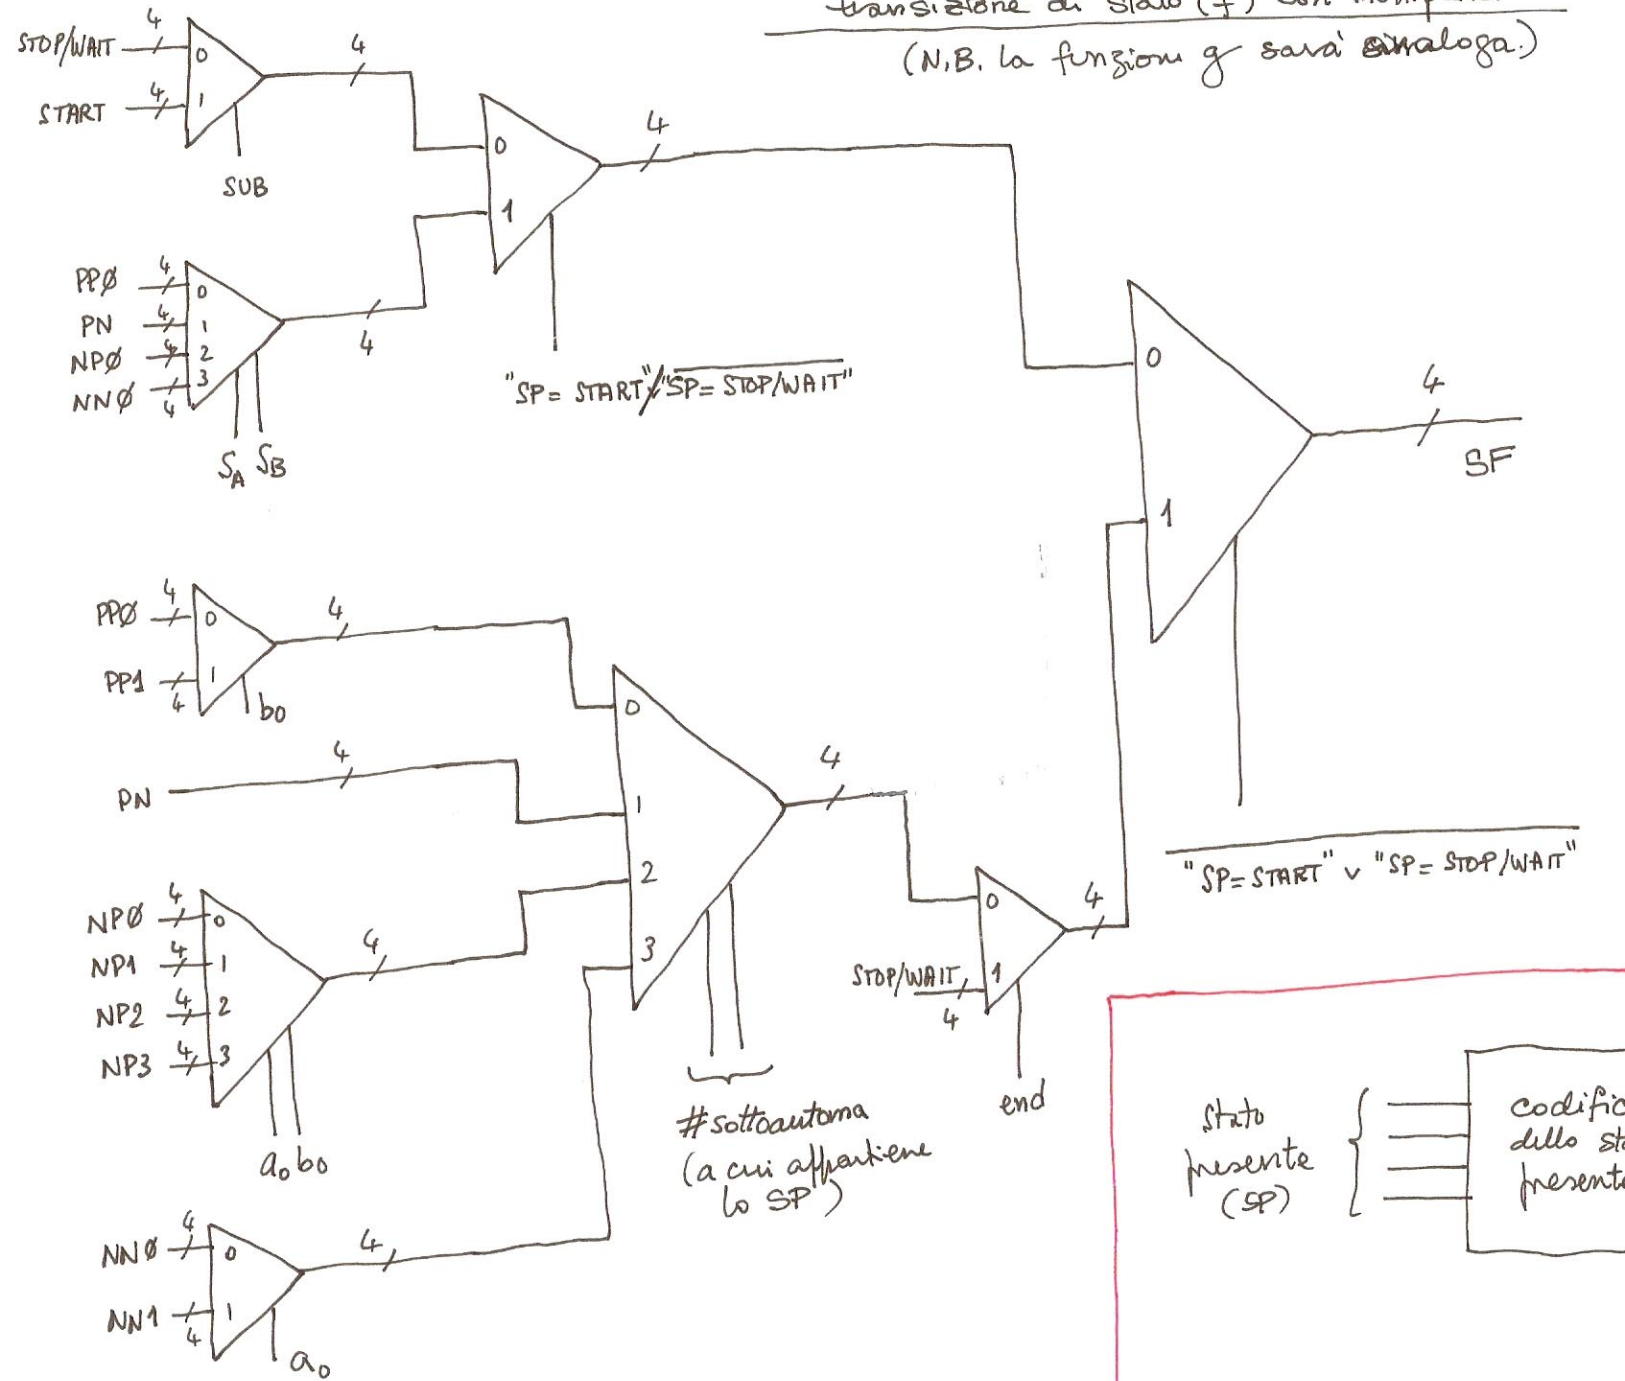 transizione di stato (f) con
(N.B. la funzione g sarà analoga.)
STOP/WAIT 4 0
START 4 1
4
SUB
0
1
4
PPØ 4 0
PN 4 1
NPØ 4 2
NNØ 4 3
4
SA SB
"SP= START" "SP= STOP/WAIT"
0
1
4
SF
PPØ 4 0
PP1 4 1
4
b0
PN 4
NPØ 4 0
NP1 4 1
NP2 4 2
NP3 4 3
4
a0 b0
NNØ 4 0
NN1 4 1
4
a0
0
1
2
3
4
#sottoautoma
(a cui appartiene
lo SP)
0
STOP/WAIT 4 1
4
end
"SP= START" v "SP= STOP/WAIT"
Stato
presente
(SP)
codific
dello st
present